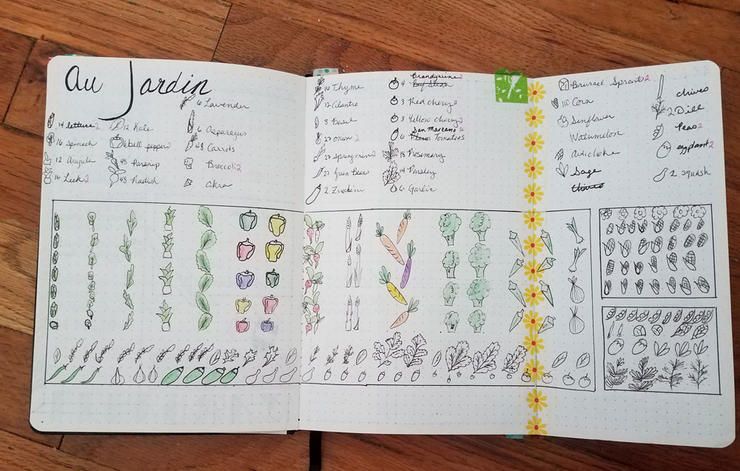 au Jardin
14 lettuce 2
16 Spinach
12 Arugula
14 Leek 2
12 Kale
bell pepper
48 Parsnip
48 Radish
6 Lavender
6 Asparagus
48 Carrots
Broccoli 2
okra
Thyme
12 Cilantro
27 onions 2
2 Zucchini
Brandywine
4
3 Red cherry 2
3 Yellow cherry 2
San Marzano
6 Tomatoes
18 Rosemary
14 Parsley
6 Garlic
Brussel Sprouts 2
110 Corn
Sunflower
Watermelon
Artichoke
Sage
chives
2 Dill
Peas 2
eggplant 2
2 squash